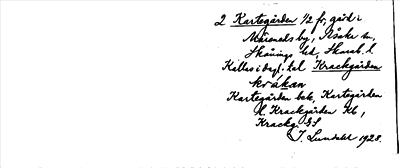 2 Kartegården 1/2 fr, gård i
Mårsneds by, Åsake sn,
Skånings hd, Skarab. l
Kallas i dagl. tal Krackgården
kråkan
Kartegården bok, Kartegården
l. Krackgården Kb,
Krackg. GS
J. Lundahl 1928.